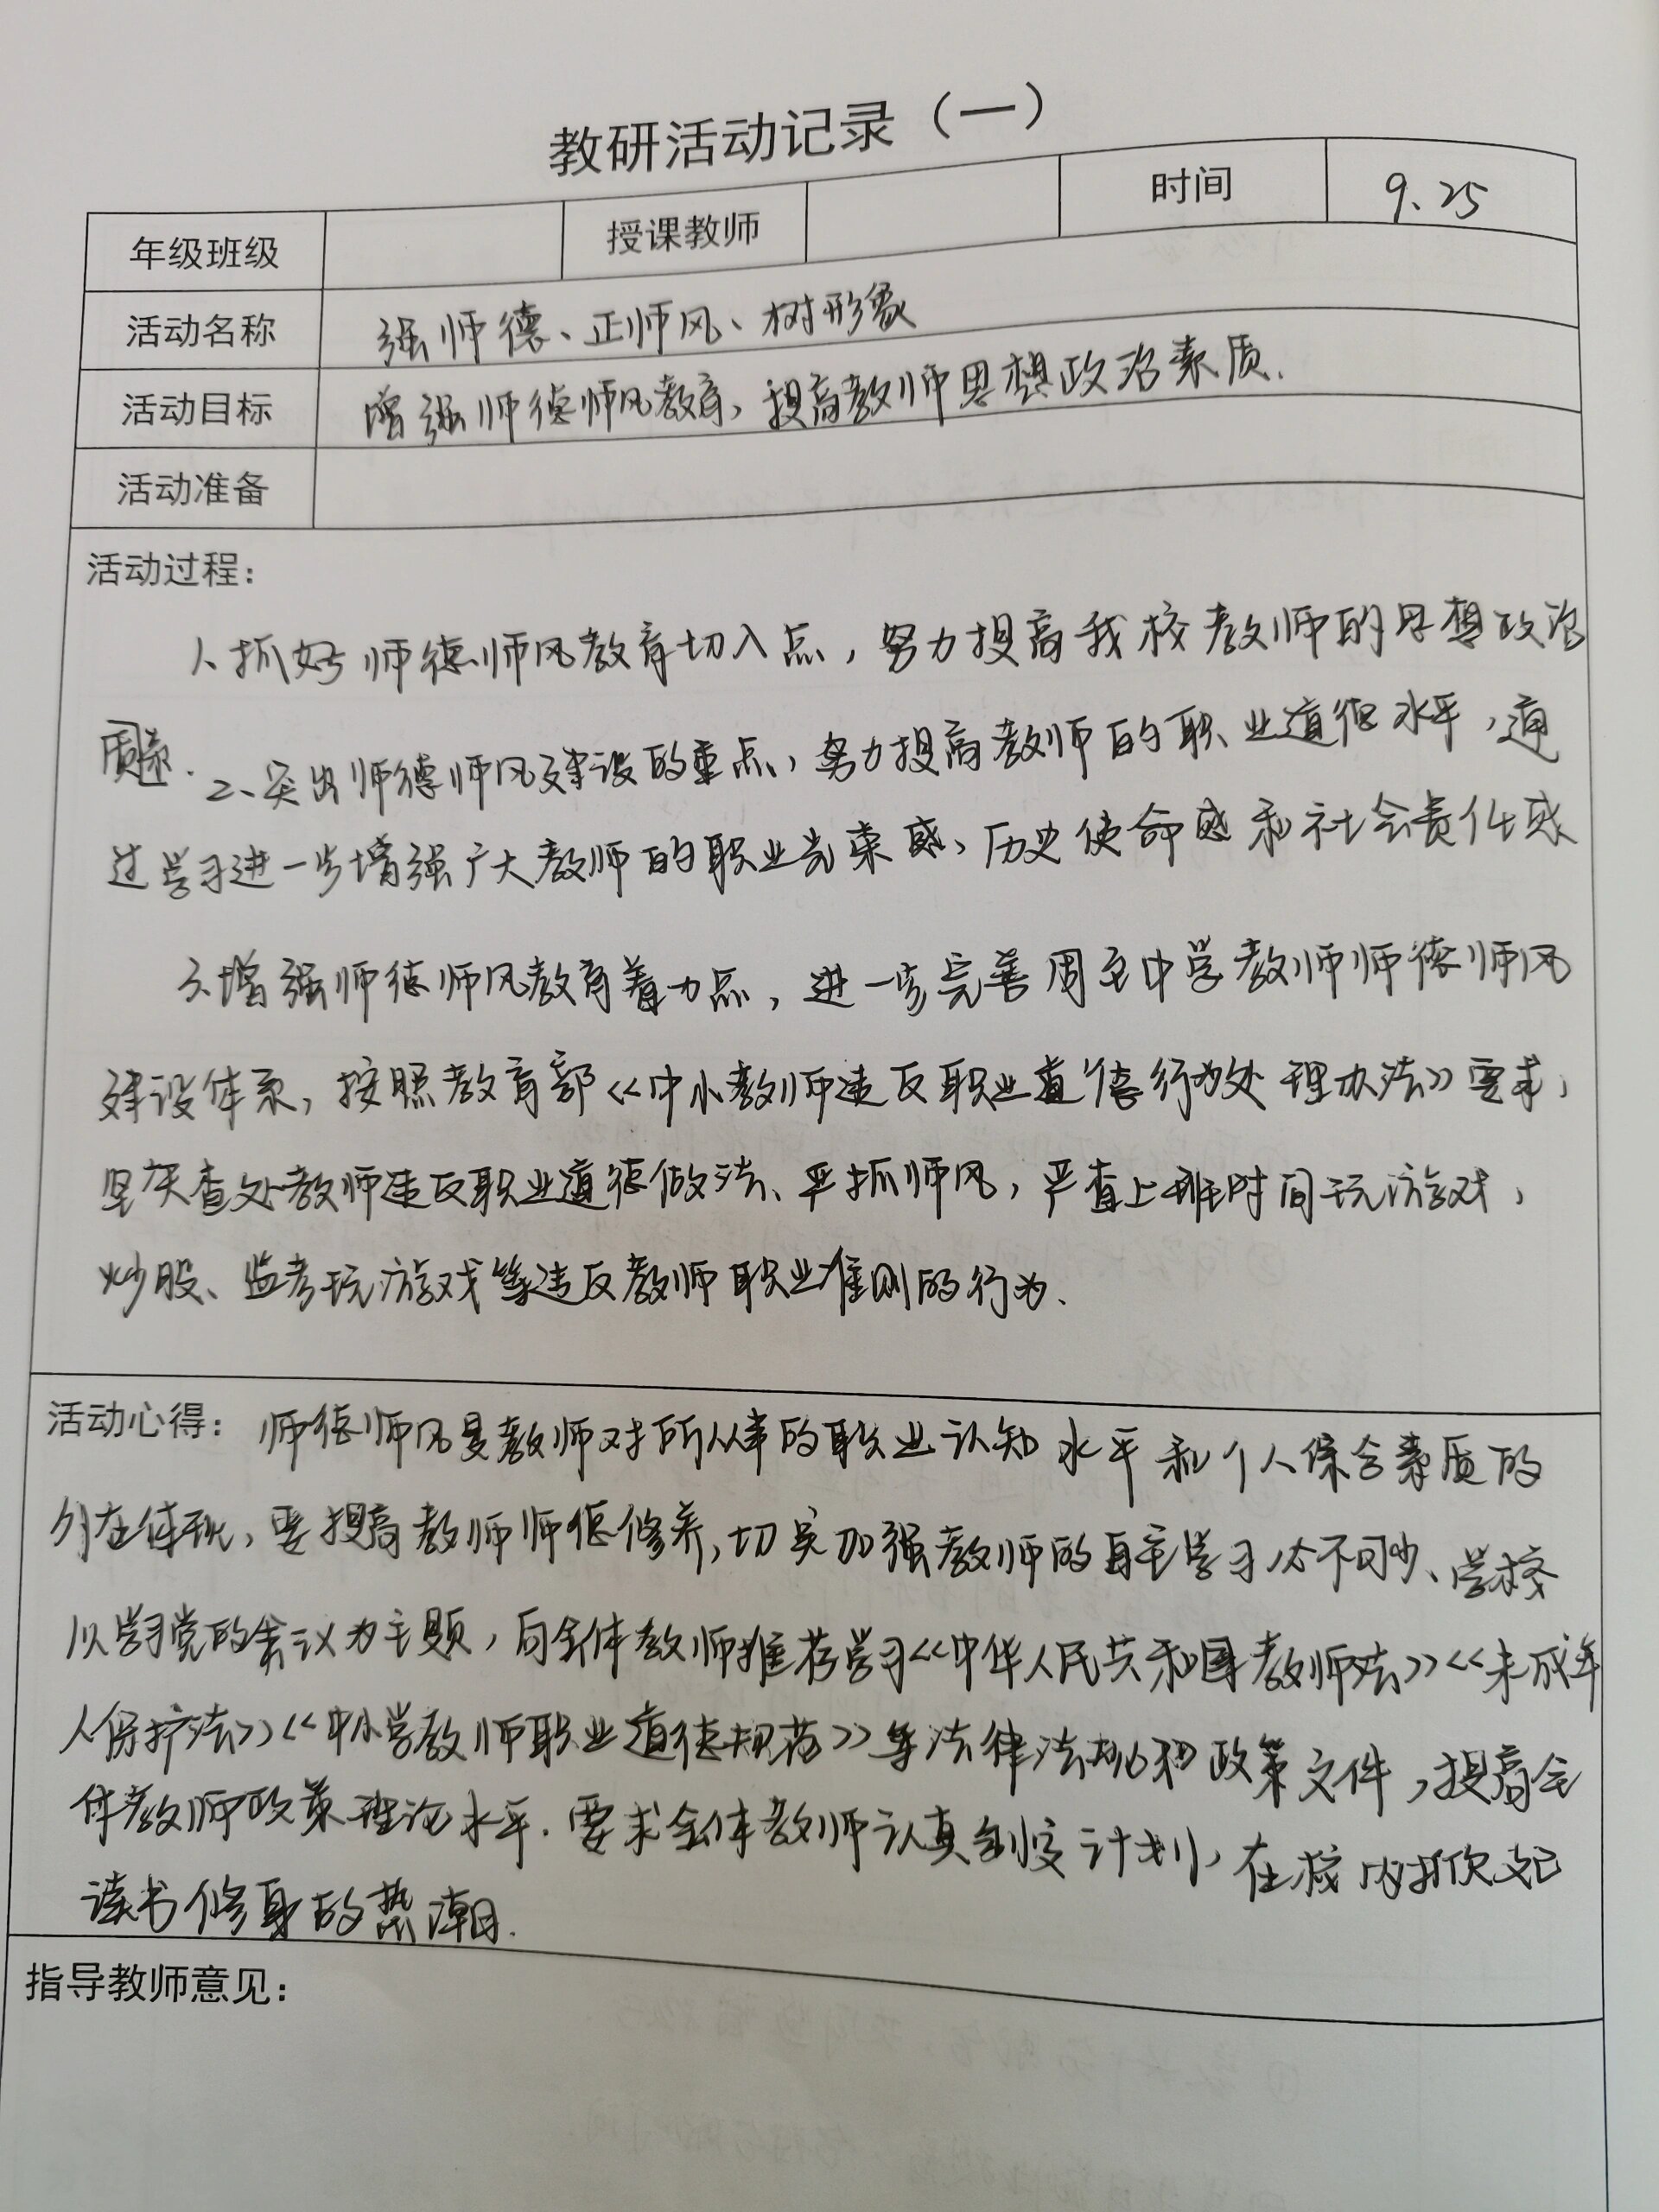 教研活动记录（一）
年级班级 授课教师 时间 9.25
活动名称 强师德、正师风、树形象
活动目标 增强师德师风教育，提高教师思想政治素质.
活动准备
活动过程：
1、抓好师德师风教育切入点，努力提高我校教师的思想政治
2、突出师德师风建设的重点，努力提高教师的职业道德水平，通
过学习进一步增强广大教师的职业光荣感、历史使命感和社会责任感
3、增强师德师风教育着力点，进一步完善周至中学教师师德师风
建设体系，按照教育部《中小教师违反职业道德行为处理办法》要求，
坚决查处教师违反职业道德做法、严抓师风，严查上班时间玩游戏，
炒股、监考玩游戏等违反教师职业准则的行为、
活动心得：师德师风是教师对所从事的职业认知水平和个人综合素质的
外在体现，要提高教师师德修养，切实加强教师的自主学习必不可少、学校
以学习党的会议为主题，向全体教师推荐学习《中华人民共和国教师法》《未成年
人保护法》《中小学教师职业道德规范》等法律法规和政策文件，提高全
体教师政策理论水平.要求全体教师认真制定计划，在校内掀起
读书修身的热潮.
指导教师意见：